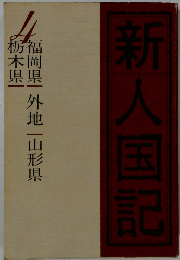 新人国記
4
福岡県 外地 山形県
栃木県